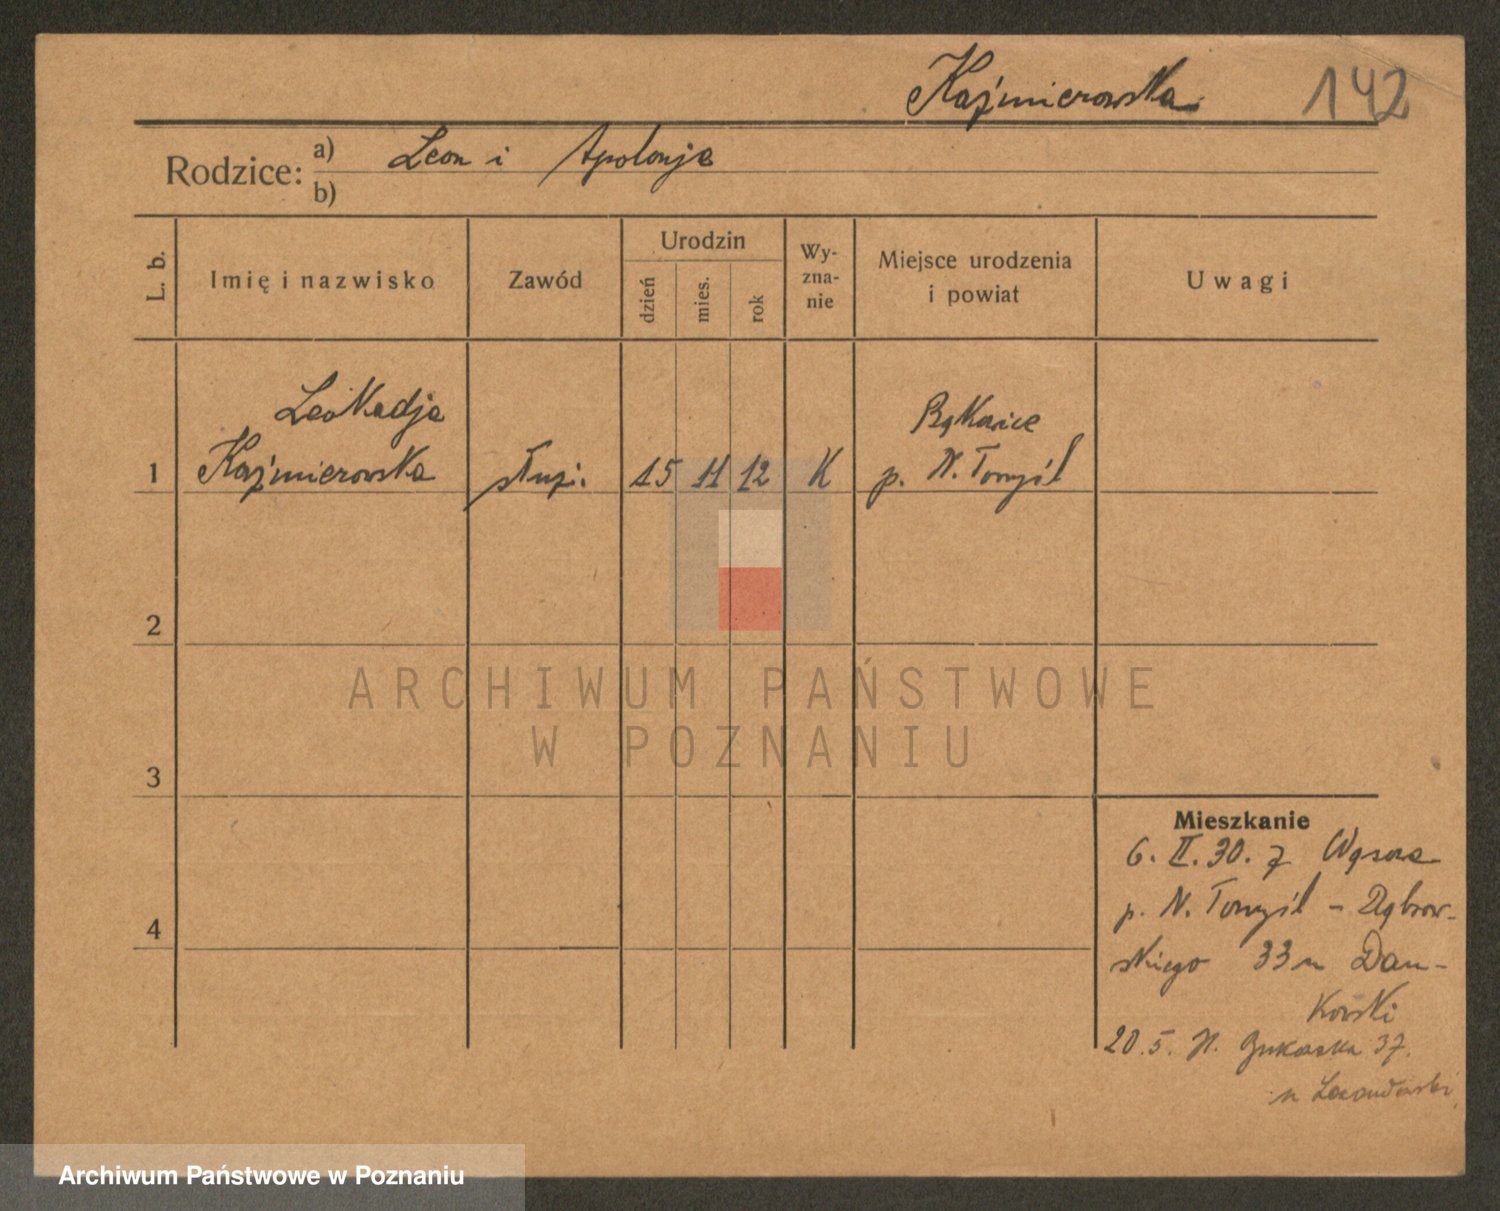 Kaźmierowska 142
Rodzice: a) Leon i Apolonja
b)
L. b. Imię i nazwisko Zawód Urodzin dzień mies. rok Wy-zna-nie Miejsce urodzenia i powiat Uwagi
Leokadja Bąkowice
1 Kaźmierowska służ. 15 11 12 K p. N. Tomyśl
2
3
4
ARCHIWUM PAŃSTWOWE
W POZNANIU
Mieszkanie
6. II. 30. z Wąsowa
p. N. Tomyśl - Dąbrow-
skiego 33 u Dan-
kowski
20.5. 37.
u
Archiwum Państwowe w Poznaniu